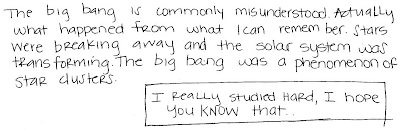 The big bang is commonly misunderstood. Actually
what happened from what I can remember. Stars
were breaking away and the solar system was
transforming. The big bang was a phenomenon of
star clusters.
I really studied hard, I hope
you know that..